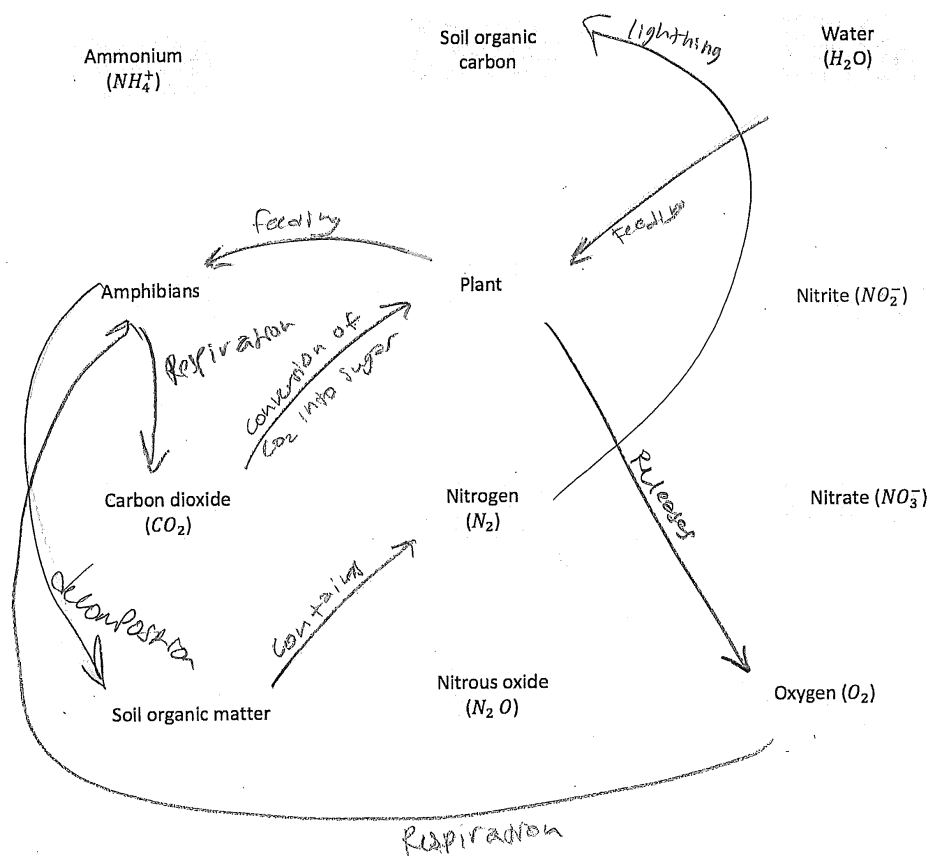 Ammonium
(NH₄⁺)
Soil organic
carbon
lightning
Water
(H₂O)
feeding
Feeding
Amphibians
Plant
Nitrite (NO₂⁻)
Respiration
conversion of
CO₂ into sugar
Carbon dioxide
(CO₂)
Nitrogen
(N₂)
Releases
Nitrate (NO₃⁻)
decomposition
contains
Soil organic matter
Nitrous oxide
(N₂ O)
Oxygen (O₂)
Respiration